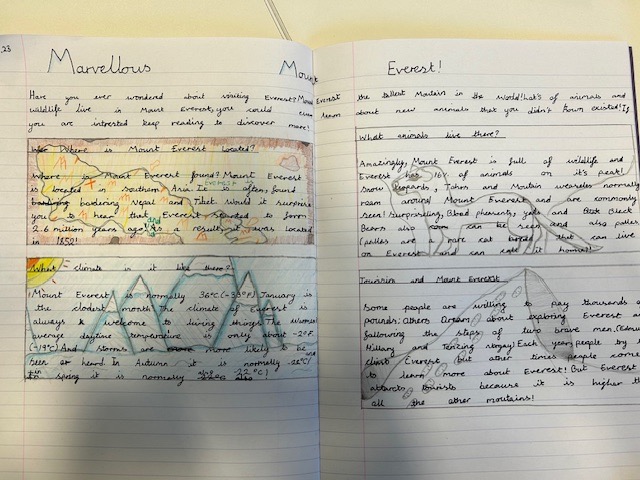 23
Marvellous Mount Everest!
Have you ever wondered about visiting Everest? Mount Everest the tallest Moutain in the World! Lot's of animals and
wildlife live in Mount Everest, you could even learn about new animals that you didn't kown existed! If
you are intrested keep reading to discover more!
Where is Mount Everest located?
Where is Mount Everest found? Mount Everest
is located in southern Asia. It is often found
bordering Nepal and Tibet. Would it surprise
you to hear that Everest started to form
2.6 million years ago? As a result, it was located
in 1852!
What climate is it like there?
Mount Everest is normally 36°C (-33°F) January is
the clodest month. The climate of Everest is
always welcome to living things. The
average daytime temperature is only about -2°F
(-19°C) And storms are more likely to be
seen or heard. In Autumn it is normally
in spring it is normally
What animals live there?
Amazingly, Mount Everest is full of wildlife and
Everest has 16% of animals on it's peak!
Snow leopards, Tahrs and Moutain weasles normally
roam around Mount Everest and are commonly
seen! Surprisling, Blood phesents, yaks and Black
Bears also can be seen and also pallas
(pallas are a rare cat that can live
on Everest and can call it home)!
Tourism and Mount Everest
Some people are willing to pay thousands
pounds. Others dream about exploring Everest a
following the steps of two brave men. (Edmun
Hillary and Tenzing norgay) Each year, people try
climb Everest but other times people come
to learn more about Everest! But Everest
attracts tourists because it is higher th
all the other moutains!